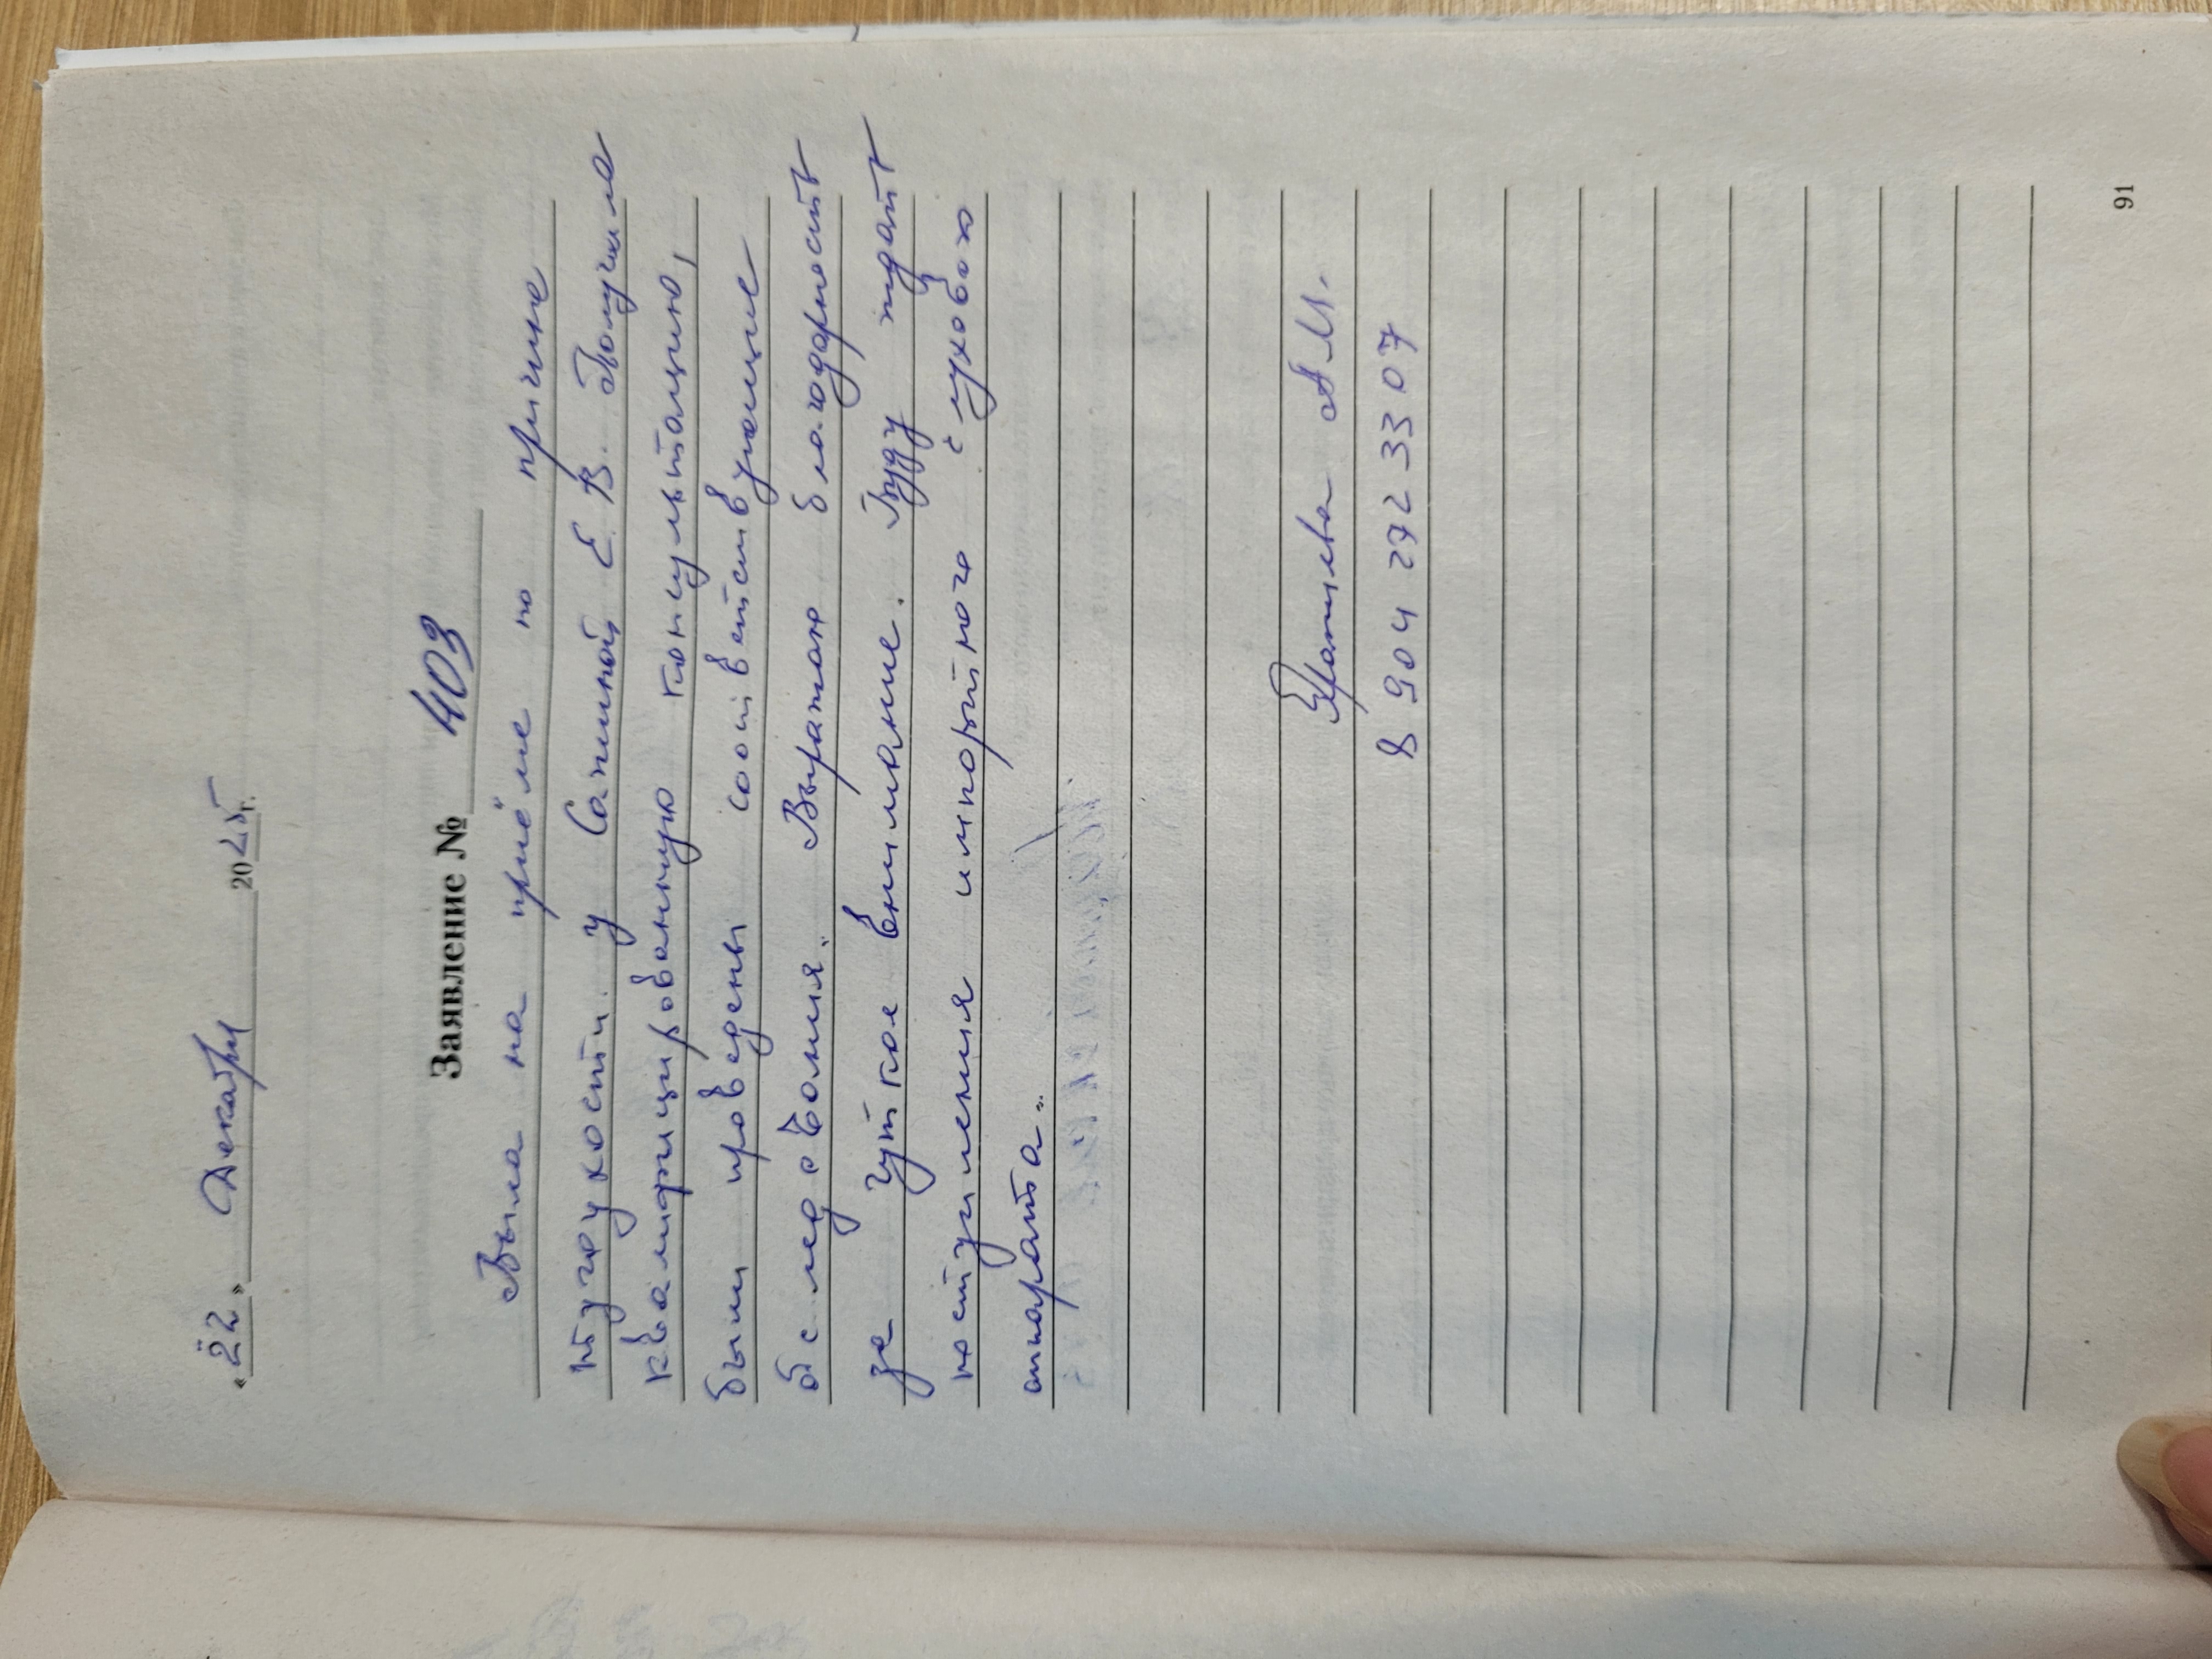 «22» Декабря 2025г.
Заявление № 403
Была на приёме по причине
тугоухости у Сажиной Е.В. Получила
квалифицированную консультацию,
были проведены соответствующие
обследования. Выражаю благодарность
за чуткое внимание. Буду ждать
поступления импортного слухового
аппарата.
А.М.
8 904 272 33 07
91